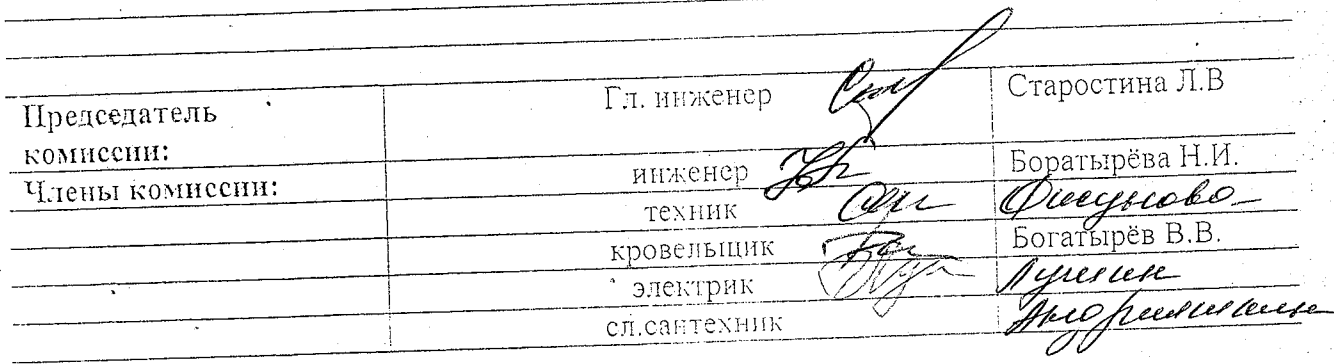 Председатель комиссии: Гл. инженер Старостина Л.В
Члены комиссии: инженер Боратырёва Н.И.
техник Фисунова
кровельщик Богатырёв В.В.
электрик
сл.сантехник